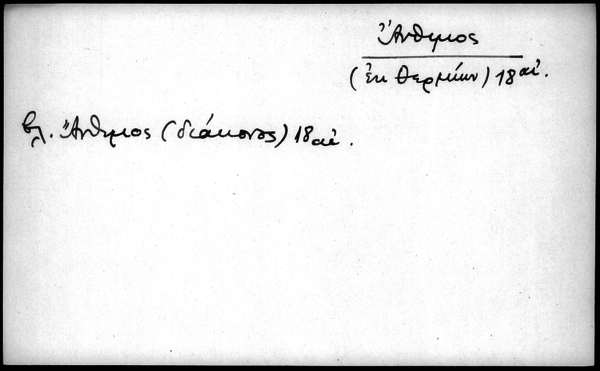 Ἄνθιμος
(ἐκ Θερμίων) 18 αἰ.
βλ. Ἄνθιμος (διάκονος) 18 αἰ.